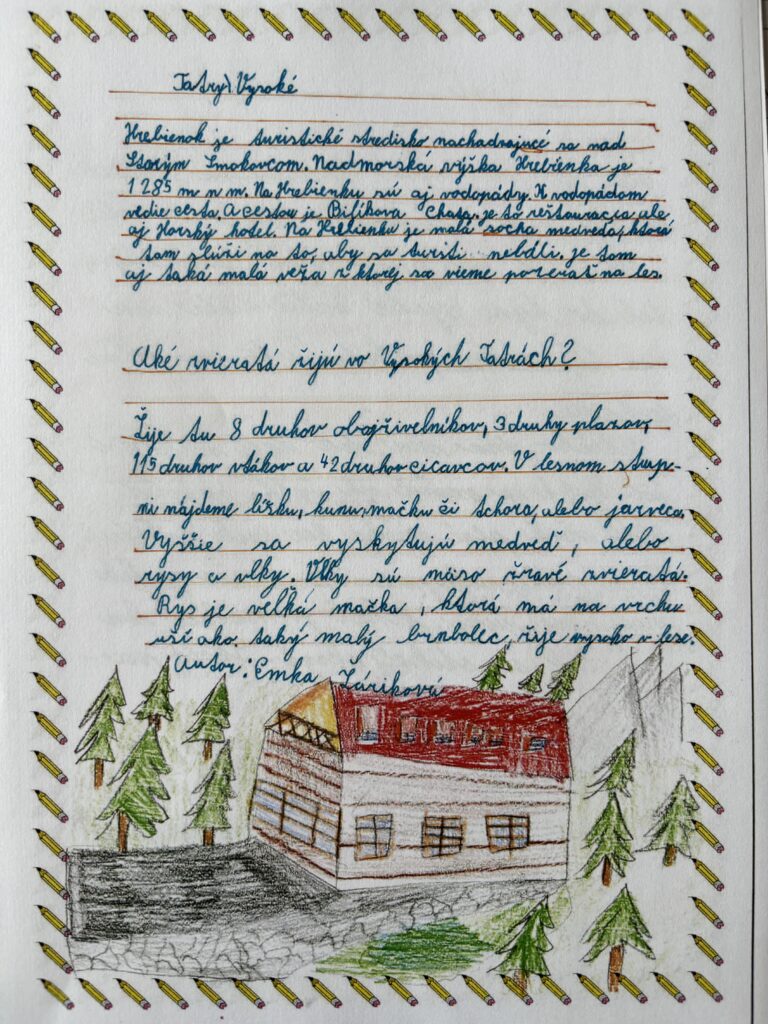 Tatry\Vysoké
Hrebienok je turistické stredisko nachadzajúce sa nad
Starým Smokovcom. Nadmorská výška Hrebienka je
1 285 m n m. Na Hrebienku sú aj vodopády. K vodopádom
vedie cesta. A cestou je Bilíkova Chata. je to reštauracia ale
aj Horský hotel. Na Hrebienku je malá socha medveďa, ktorá
tam slúži na to, aby sa turisti nebáli. je tam
aj taká malá veža z ktorej sa vieme pozerať na les.
Aké zvieratá žijú vo Vysokých Tatrách?
Žije tu 8 druhov obojživelníkov, 3 druhy plazov,
115 druhov vtákov a 42 druhov cicavcov. V lesnom stup-
ni nájdeme líšku, kunu, mačku či tchora, alebo jazveca.
Vyššie sa vyskytujú medveď, alebo
rysy a vlky. Vlky sú mäso žravé zvieratá.
Rys je veľká mačka, ktorá má na vrchu
uší ako taký malý brnbolec, žije vysoko v lese.
Autor: Emka Járiková